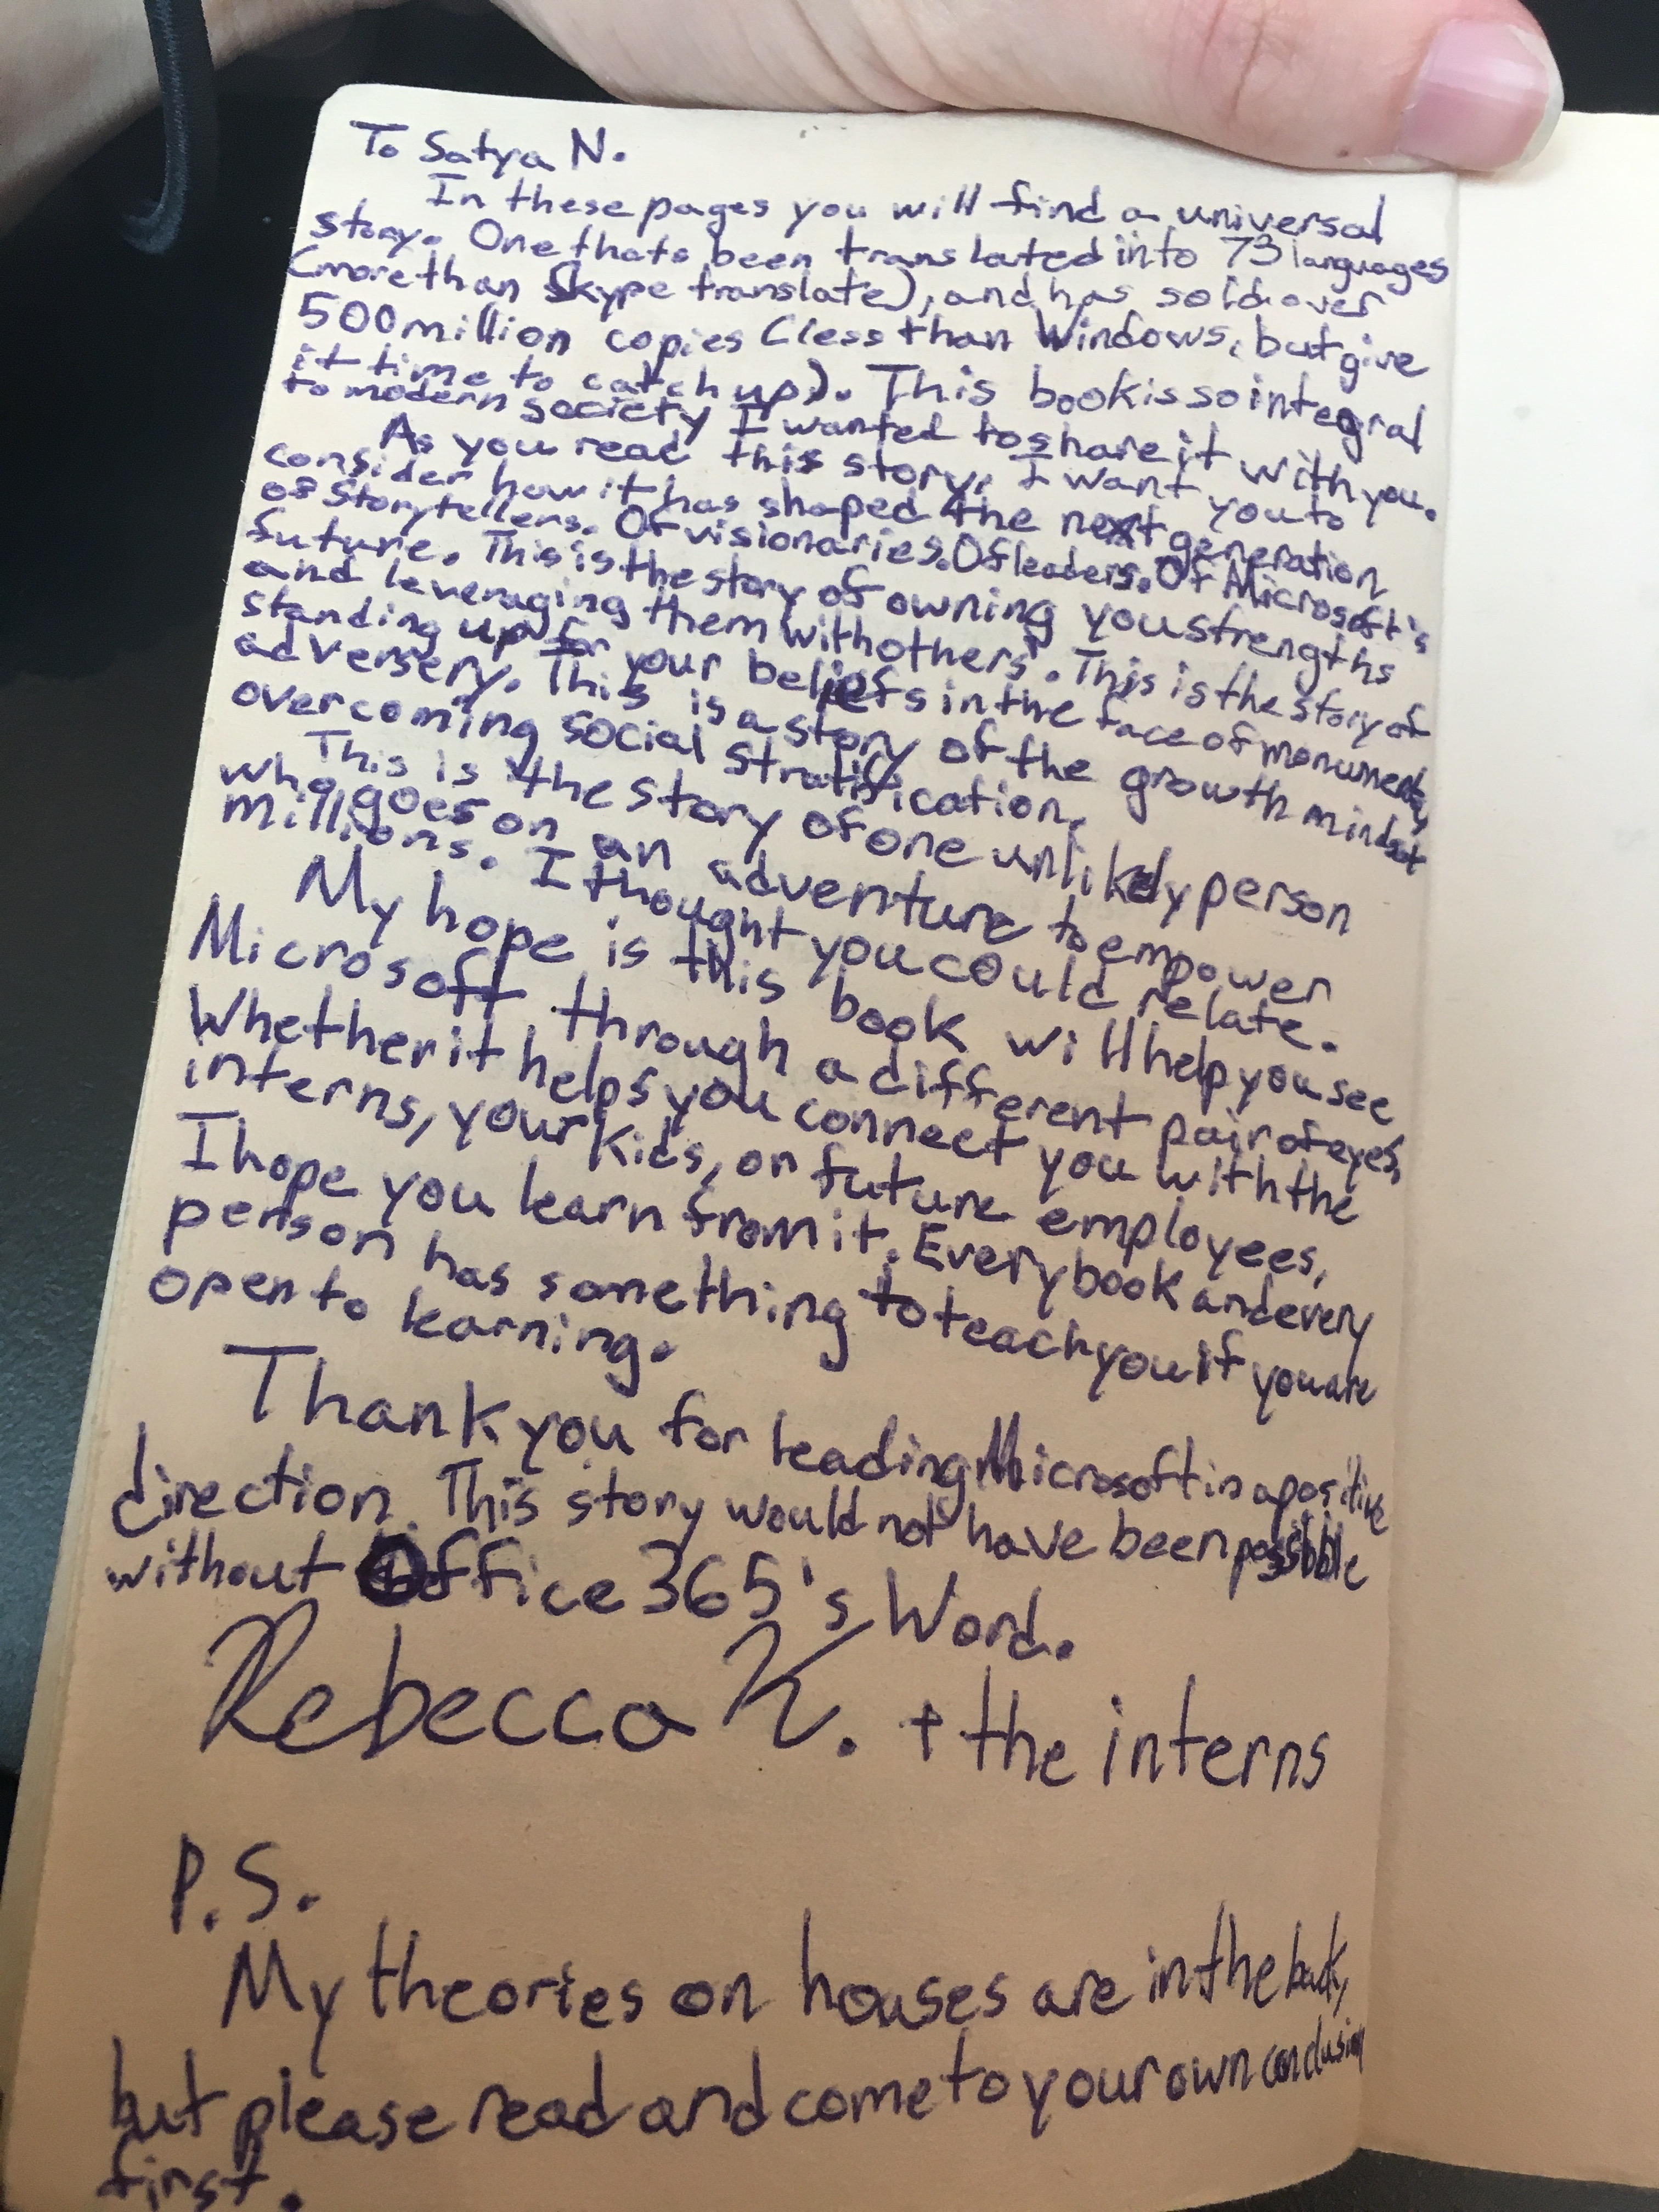 To Satya N.
In these pages you will find a universal
story. One thats been translated into 73 languages
(more than Skype translate), and has sold over
500 million copies (less than Windows, but give
it time to catch up). This book is so integral
to modern society I wanted to share it with you.
As you read this story, I want you to
consider how it has shaped the next generation
of Storytellers. Of visionaries. Of leaders. Of Microsoft's
future. This is the story of owning you strengths
and leveraging them with others'. This is the story of
standing up for your beliefs in the face of monumental
adversery. This is a story of the growth mindset
overcoming social stratification.
This is the story of one unlikely person
who goes on an adventure to empower
millions. I thought you could relate.
My hope is this book will help you see
Microsoft through a different pair of eyes,
Whether it helps you connect you with the
interns, your kids, or future employees,
I hope you learn from it. Every book and every
person has something to teach you if you are
open to learning.
Thank you for leading Microsoft in a positive
direction. This story would not have been possible
without Office 365's Word.
Rebecca K. + the interns
P.S.
My theories on houses are in the back,
but please read and come to your own conclusion
first.